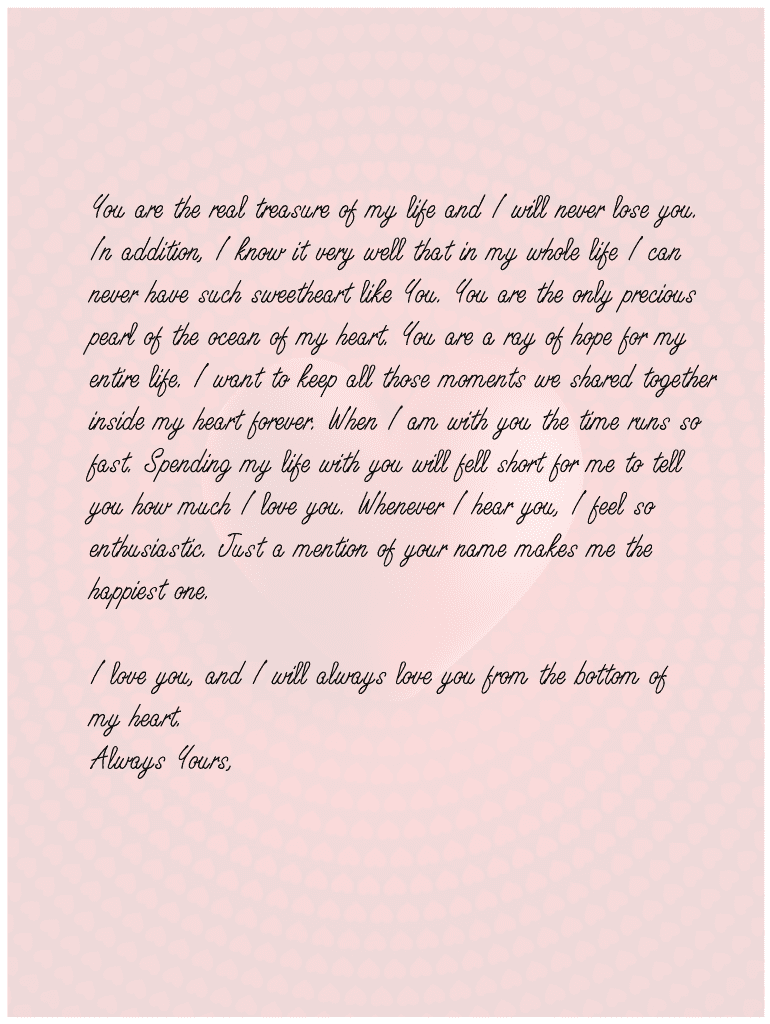 You are the real treasure of my life and I will never lose you.
In addition, I know it very well that in my whole life I can
never have such sweetheart like You. You are the only precious
pearl of the ocean of my heart. You are a ray of hope for my
entire life. I want to keep all those moments we shared together
inside my heart forever. When I am with you the time runs so
fast. Spending my life with you will fell short for me to tell
you how much I love you. Whenever I hear you, I feel so
enthusiastic. Just a mention of your name makes me the
happiest one.
I love you, and I will always love you from the bottom of
my heart.
Always Yours,